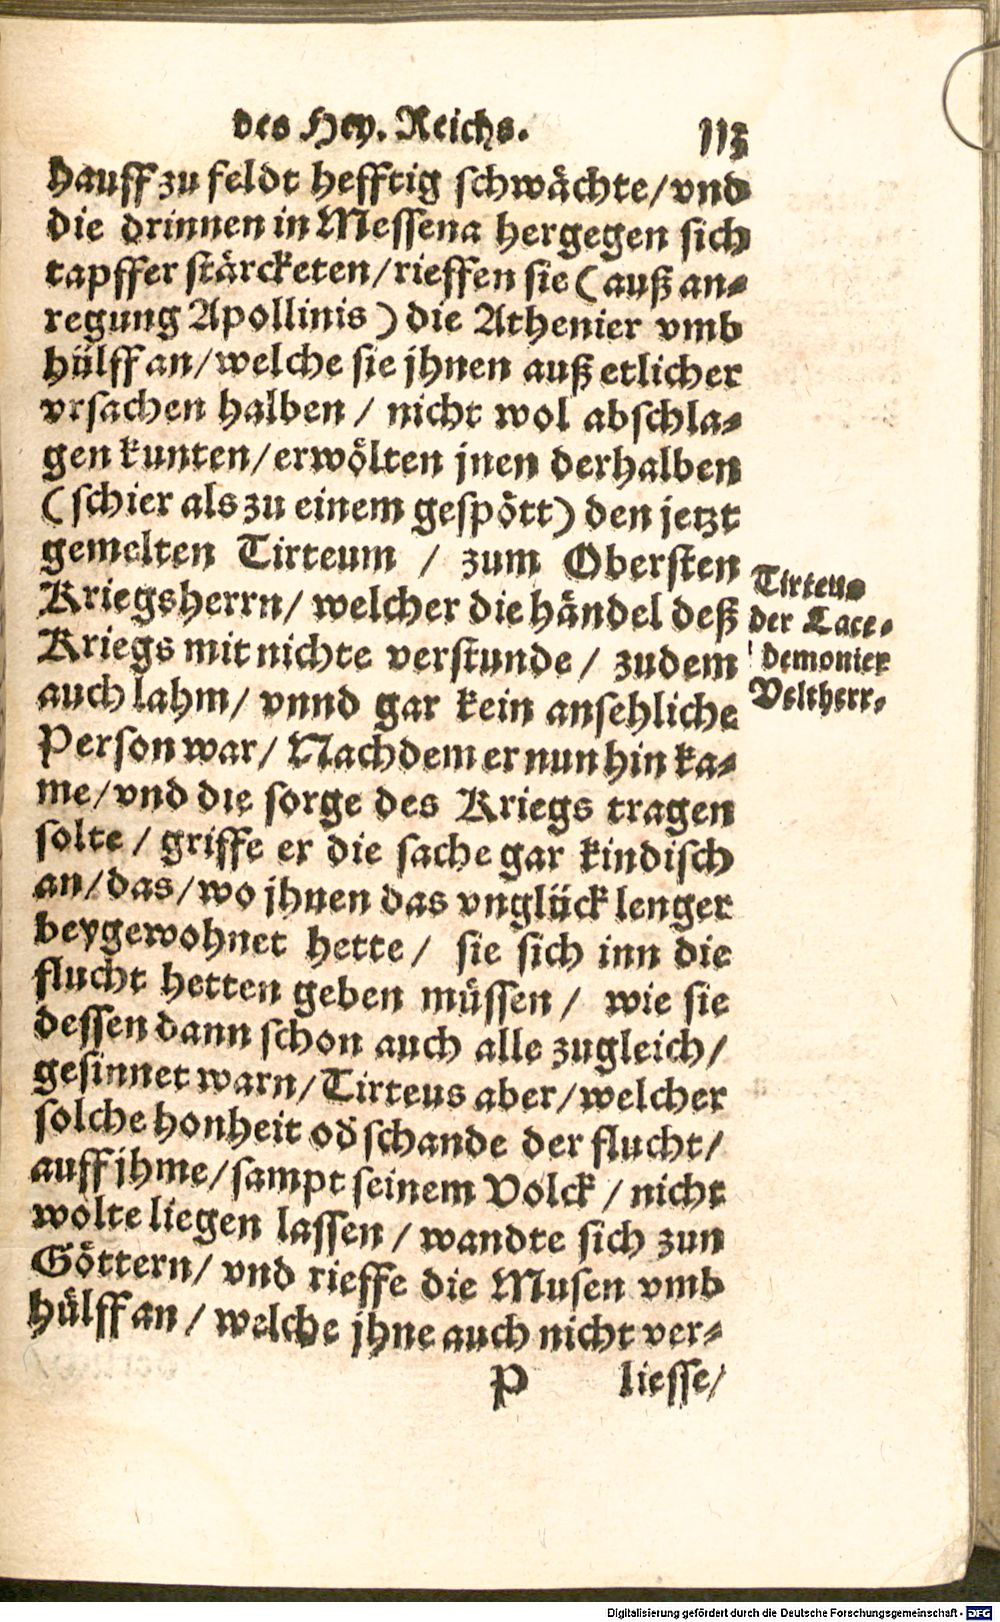 des Hey. Reichs. 113
hauff zu feldt hefftig schwächte/vnd
die drinnen in Messena hergegen sich
tapffer stärcketen/rieffen sie (auß an⸗
regung Apollinis) die Athenier vmb
hülff an/welche sie jhnen auß etlicher
vrsachen halben / nicht wol abschla⸗
gen kunten/erwölten jnen derhalben
(schier als zu einem gespött) den jetzt
gemelten Tirteum / zum Obersten
Kriegsherrn/ welcher die händel deß
Kriegs mit nichte verstunde / zudem
auch lahm/ vnnd gar kein ansehliche
Person war/ Nachdem er nun hin ka⸗
me/vnd die sorge des Kriegs tragen
solte / griffe er die sache gar kindisch
an/das/wo jhnen das vnglück lenger
beygewohnet hette/ sie sich inn die
flucht hetten geben müssen / wie sie
dessen dann schon auch alle zugleich/
gesinnet warn/Tirteus aber/welcher
solche honheit od̓ schande der flucht/
auff jhme/sampt seinem Volck / nicht
wolte liegen lassen / wandte sich zun
Göttern/ vnd rieffe die Musen vmb
hülff an / welche jhne auch nicht ver⸗
P liesse/
Tirteus
der Lace⸗
demonier
Veltherr.
Digitalisierung gefördert durch die Deutsche Forschungsgemeinschaft - DFG